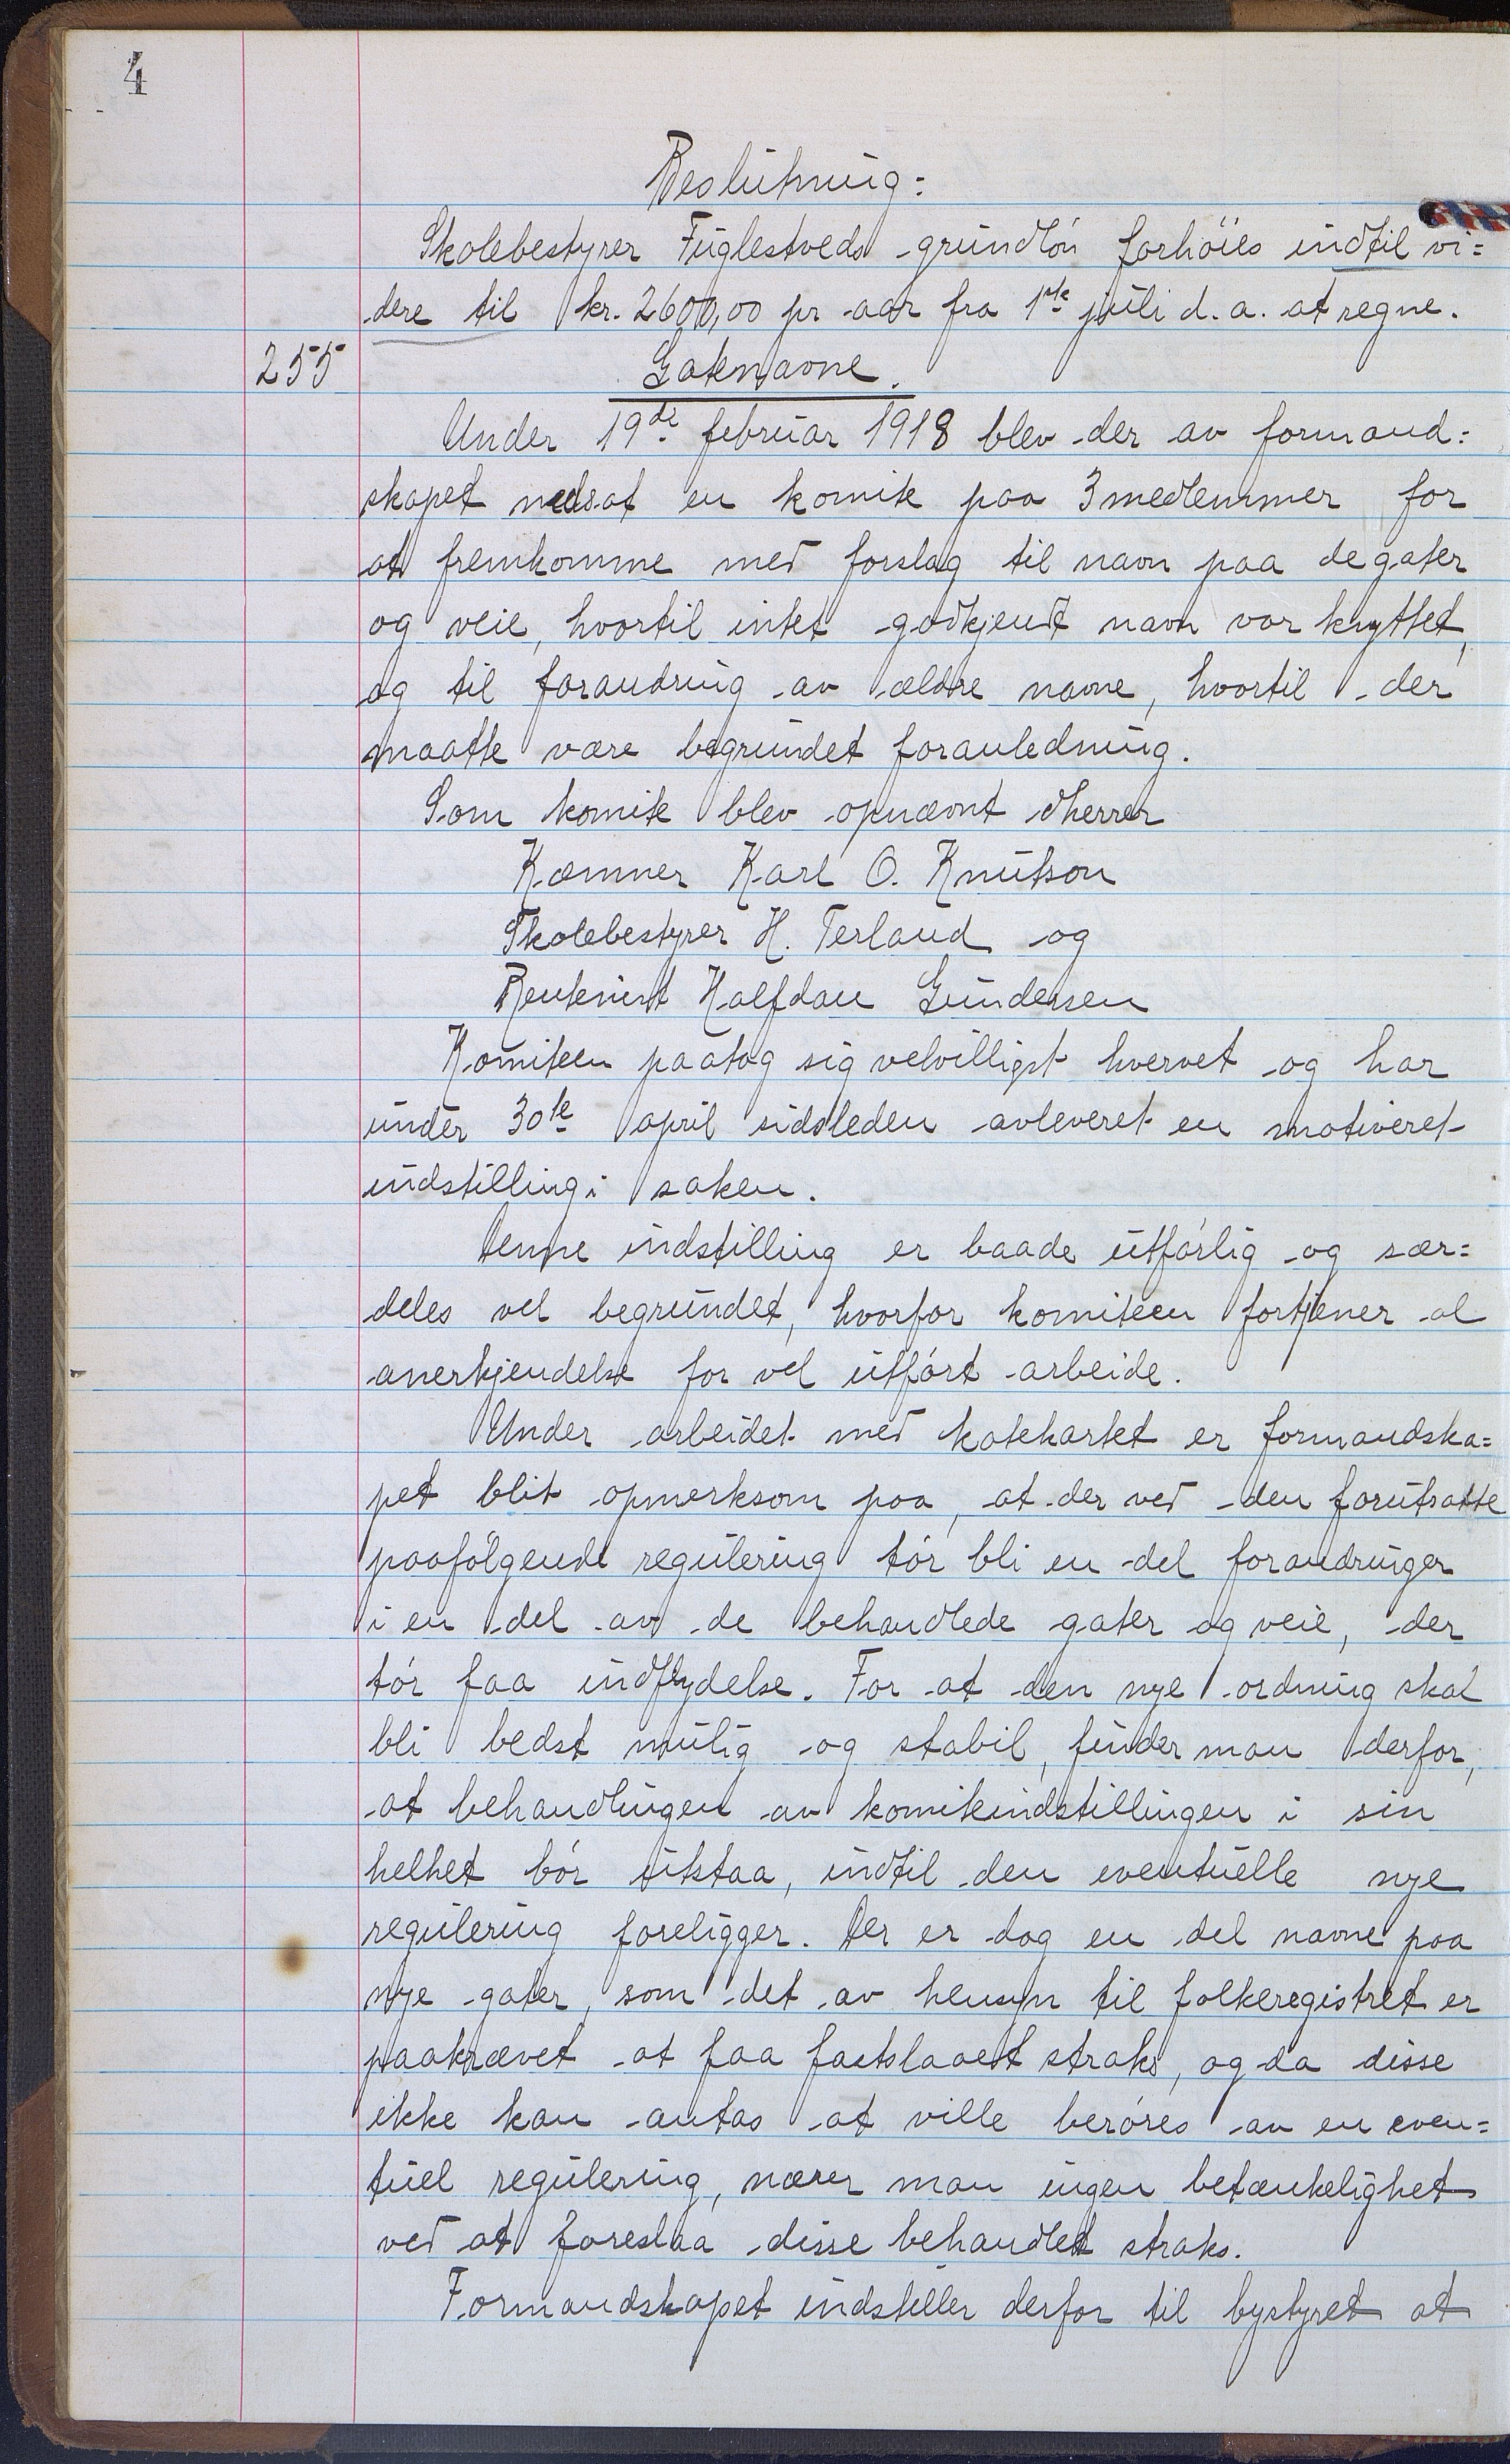 4
Beslutning:
Skolebestyrer Fuglestveds grundlön forhöies indtil vi=
dere til kr. 2600,00 pr aar fra 1ste juli d. a. at regne.
255 Gatenavne.
Under 19de februar 1918 blev der av formand=
skapet nedsat en komite paa 3 medlemmer for
at fremkomme med forslag til navn paa de gater
og veie, hvortil intet godkjendt navn var knyttet,
og til forandring av ældre navne, hvortil der
maatte være begrundet foranledning.
Som komite blev opnævnt dherrer
Kæmner Karl O. Knutson
Skolebestyrer H. Terland og
Rentenist Halfdan Gundersen
Komiteen paatog sig velvilligst hvervet og har
under 30te april sidstleden avleveret en motiveret
indstilling i saken.
Denne indstilling er baade utförlig og sær=
deles vel begrundet, hvorfor komiteen fortjener al
anerkjendelse for vel utfört arbeide.
Under arbeidet med kotekartet er formandska=
pet blit opmerksom paa, at der ved den forutsatte
paafölgende regulering tör bli en del forandringer
i en del av de behandlede gater og veie, der
tör faa indflydelse. For at den nye ordning skal
bli bedst mulig og stabil, finder man derfor,
at behandlingen av komiteindstillingen i sin
helhet bör utstaa, indtil den eventuelle nye
regulering foreligger. Der er dog en del navne paa
nye gater, som det av hensyn til folkeregistret er
paakrævet at faa fastslaaet straks, og da disse
ikke kan antas at ville beröres av en even=
tuel regulering, nærer man ingen betænkelighet
ved at foreslaa disse behandlet straks.
Formandskapet indstiller derfor til bystyret at